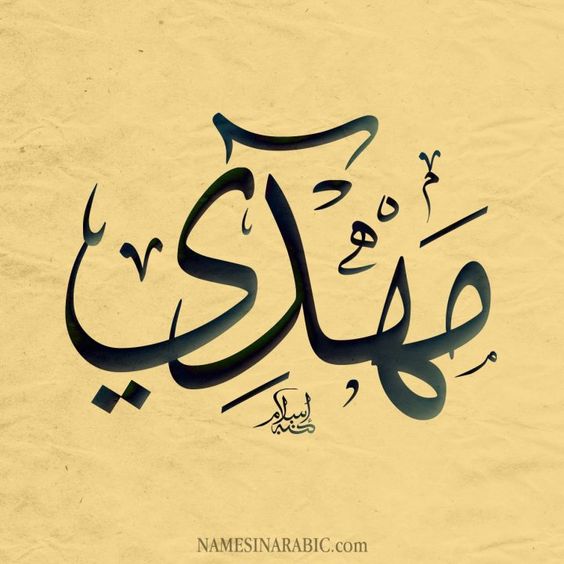 مَهْدِي
كتبه إسلام
NAMESINARABIC.com